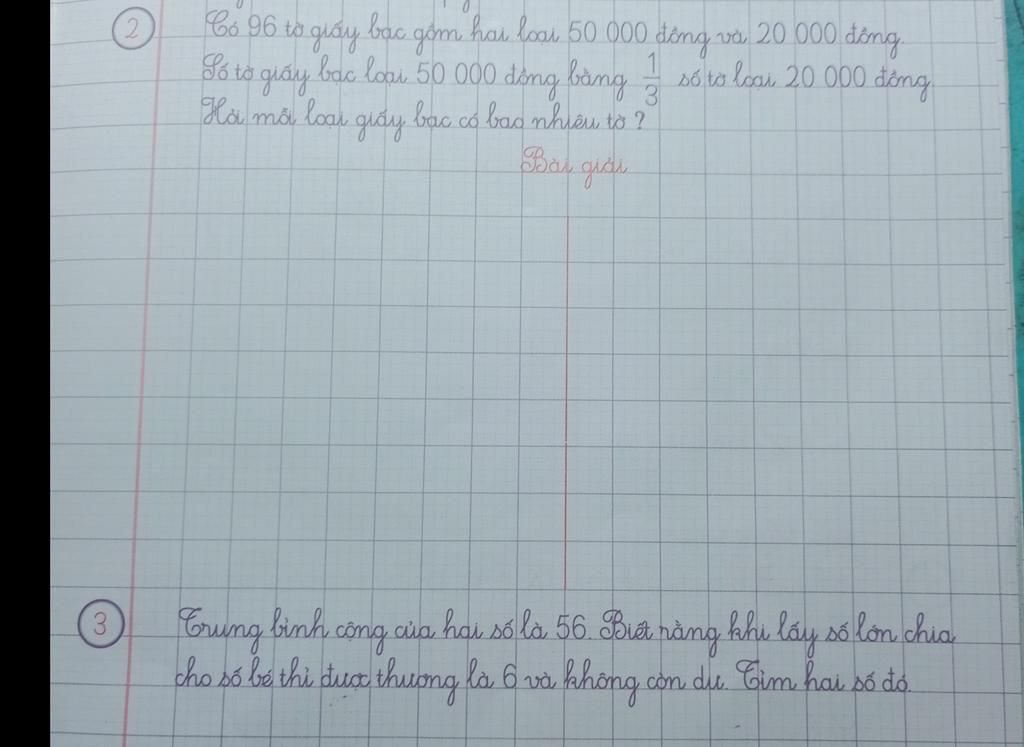 2 Có 96 tờ giấy bạc gồm hai loại 50 000 đồng và 20 000 đồng.
Số tờ giấy bạc loại 50 000 đồng bằng 1/3 số tờ loại 20 000 đồng
Hỏi mỗi loại giấy bạc có bao nhiêu tờ?
Bài giải
3 Trung bình cộng của hai số là 56. Biết rằng khi lấy số lớn chia
cho số bé thì được thương là 6 và không còn dư. Tìm hai số đó.